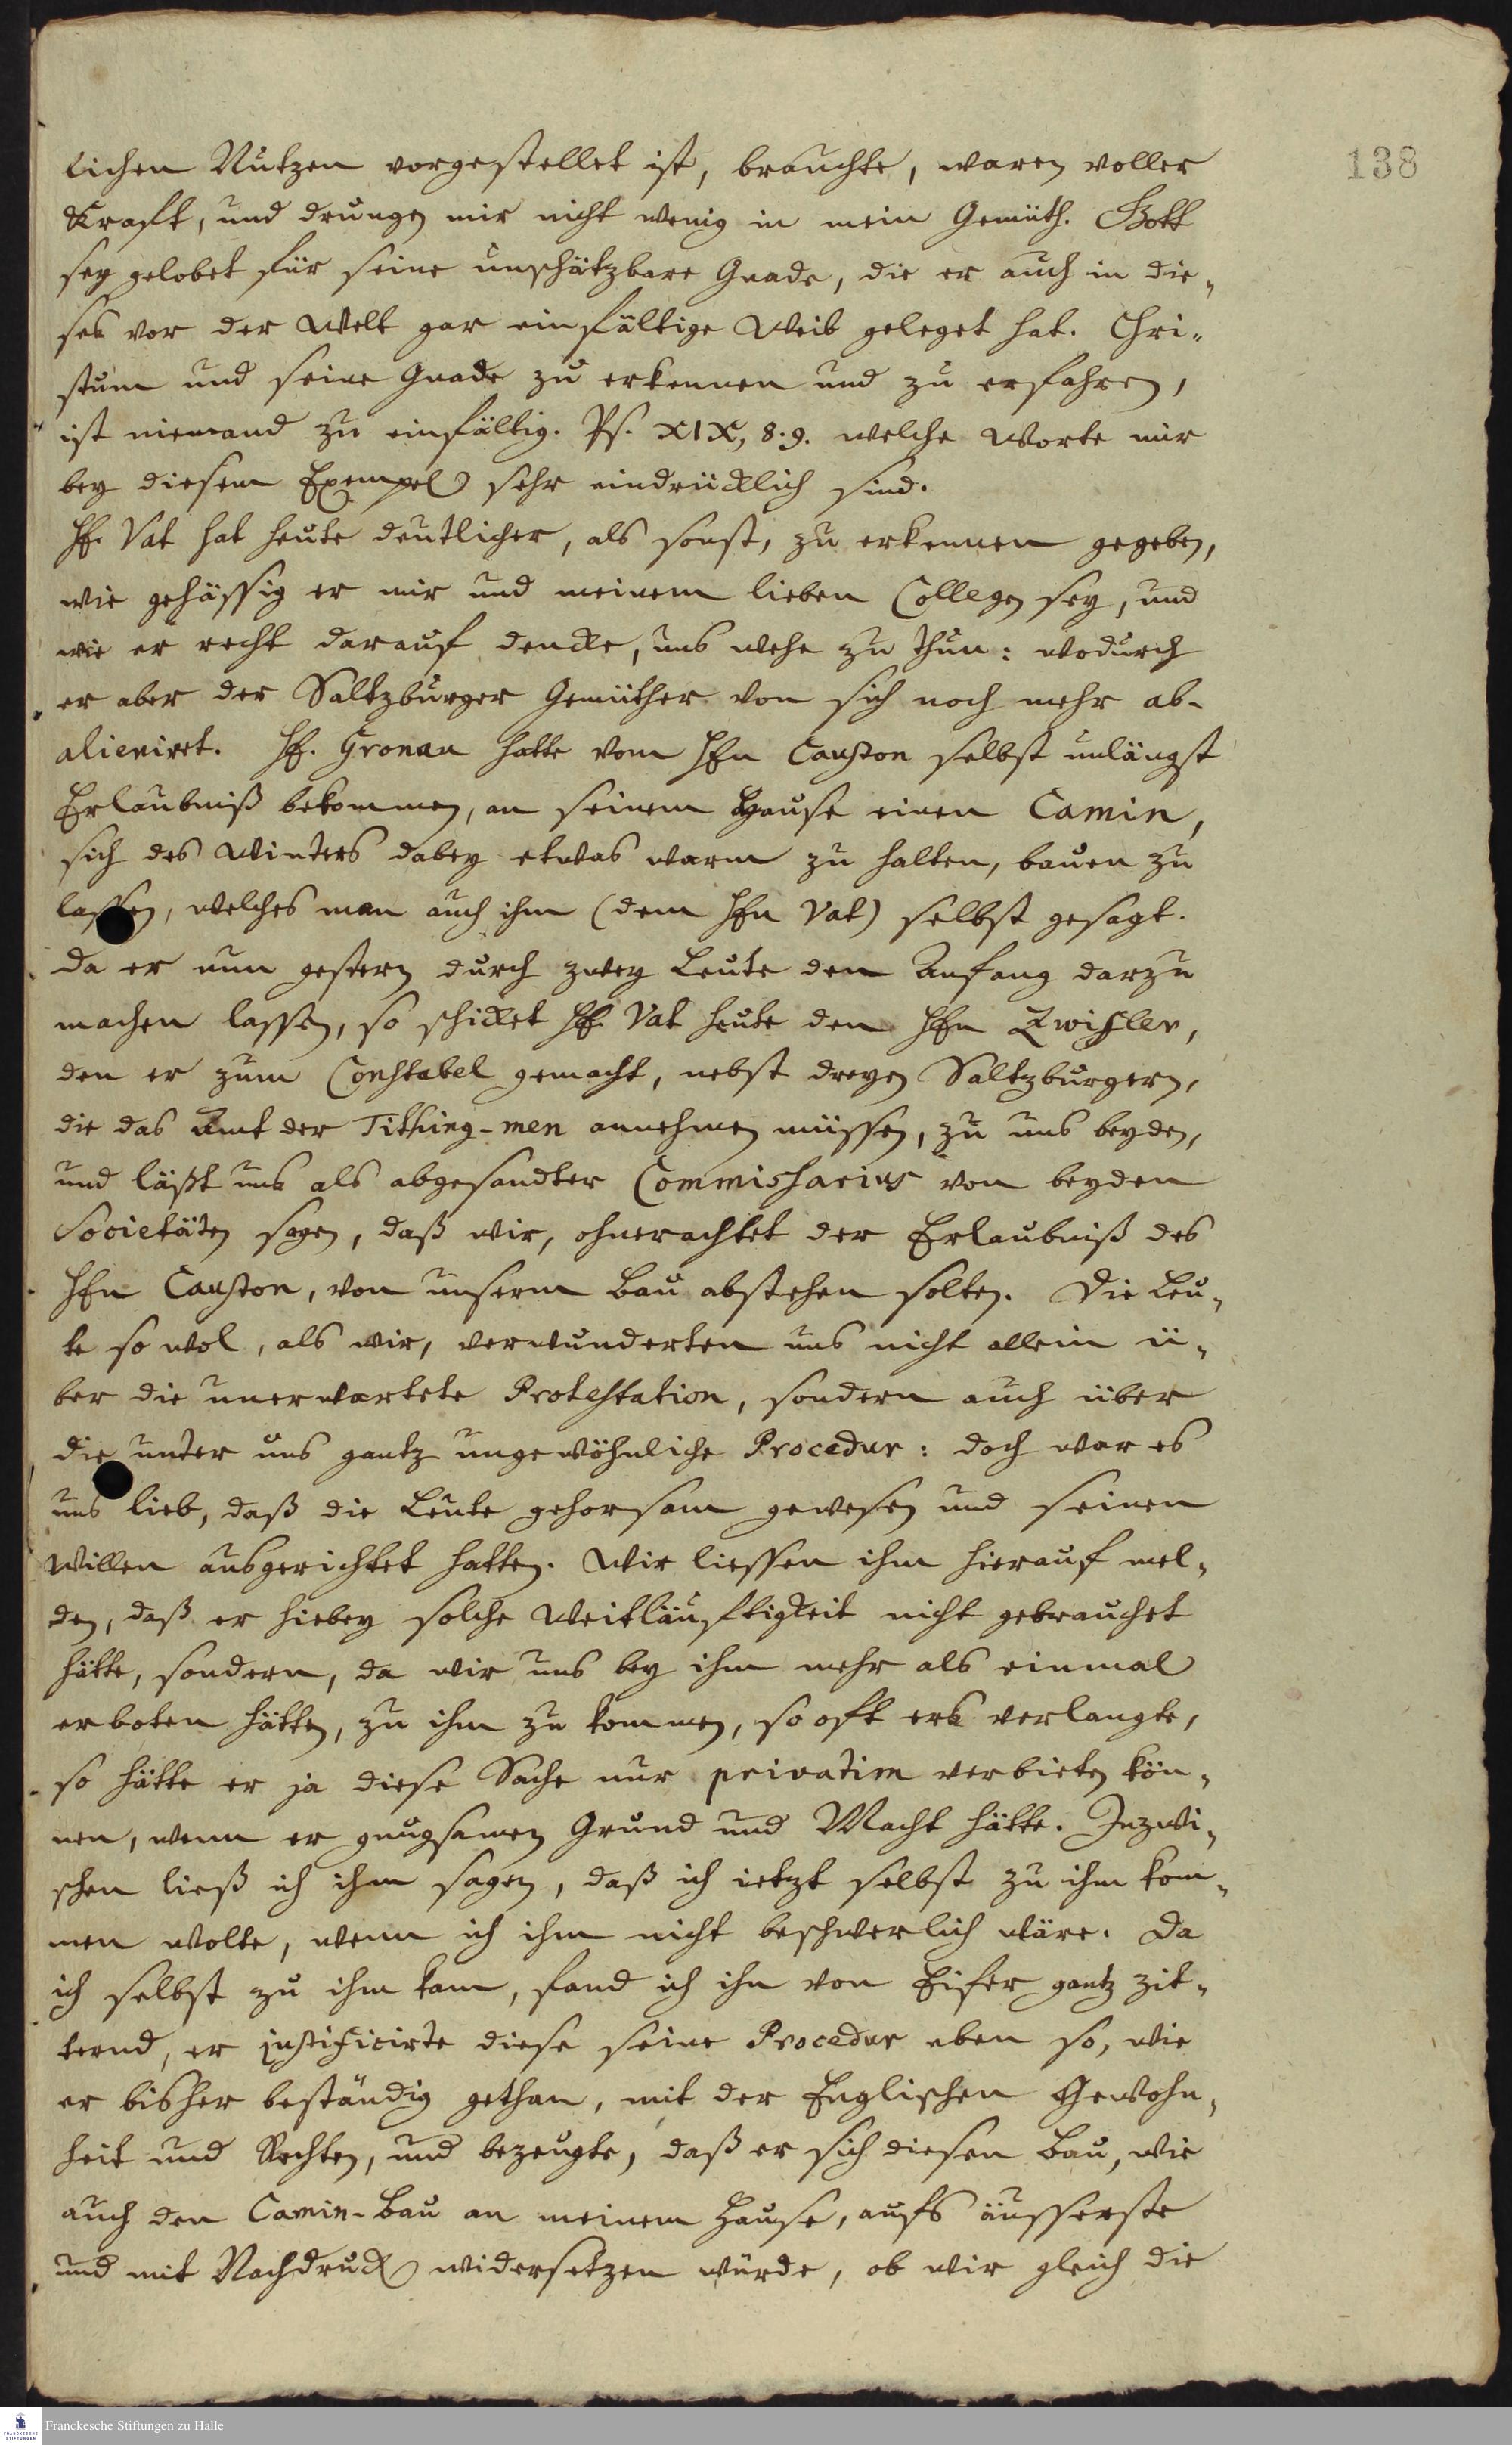 138
lichen Nutzen vorgestellet ist, brauchte, waren voller
Kraft, und drungen mir nicht wenig in mein Gemüth. Gott
sey gelobet für seine unschätzbare Gnade, die er auch in die-
ses vor der Welt gar einfältige Weib geleget hat. Chri-
stum und seine Gnade zu erkennen und zu erfahren,
ist niemand zu einfältig. Ps. XIX, 8.9. welche Worte mir
bey diesem Exempel sehr eindrücklich sind.
Hr. Vat hat heute deutlicher, als sonst, zu erkennen gegeben,
wie gehässig er mir und meinem lieben Collegen sey, und
wie er recht darauf dencke, uns wehe zu thun: wodurch
er aber der Saltzburger Gemüther von sich noch mehr ab-
alieniret. Hr. Gronau hatte vom Hrn Causton selbst unlängst
Erlaubniß bekommen, an seinem Hause einen Camin,
sich des Winters dabey etwas warm zu halten, bauen zu
lassen, welches man auch ihm (dem Hrn Vat) selbst gesagt.
Da er nun gestern durch zwey Leute den Anfang darzu
machen lassen, so schicket Hr. Vat heute den Hrn Zwifler,
den er zum Constabel gemacht, nebst dreyen Saltzburgern,
die das Amt der Tithing-men annehmen müssen, zu uns beyden,
und läßt uns als abgesandter Commissarius von beyden
Societäten sagen, daß wir, ohnerachtet der Erlaubniß des
Hrn Causton, von unserm Bau abstehen solten. Die Leu-
te so wol, als wir, verwunderten uns nicht allein ü-
ber die unerwartete Protestation, sondern auch über
die unter uns gantz ungewöhnliche Procedur: doch war es
uns lieb, daß die Leute gehorsam gewesen und seinen
Willen ausgerichtet hatten. Wir liessen ihm hierauf mel-
den, daß er hiebey solche Weitläuftigkeit nicht gebrauchet
hätte, sondern, da wir uns bey ihm mehr als einmal
erboten hätten, zu ihm zu kommen, so oft ers verlangte,
so hätte er ja diese Sache nur privatim verbieten kön-
nen, wenn er gnugsamen Grund und Macht hätte. Inzwi-
schen ließ ich ihm sagen, daß ich ietzt selbst zu ihm kom-
men wolte, wenn ich ihm nicht beschwerlich wäre. Da
ich selbst zu ihm kam, fand ich ihn von Eifer gantz zit-
ternd, er justificirte diese seine Procedur eben so, wie
er bisher beständig gethan, mit der Englischen Gewohn-
heit und Rechten, und bezeugte, daß er sich diesen Bau, wie
auch den Camin-Bau an meinem Hause, aufs äusserste
und mit Nachdruck widersetzen würde, ob wir gleich die
Franckesche Stiftungen zu Halle